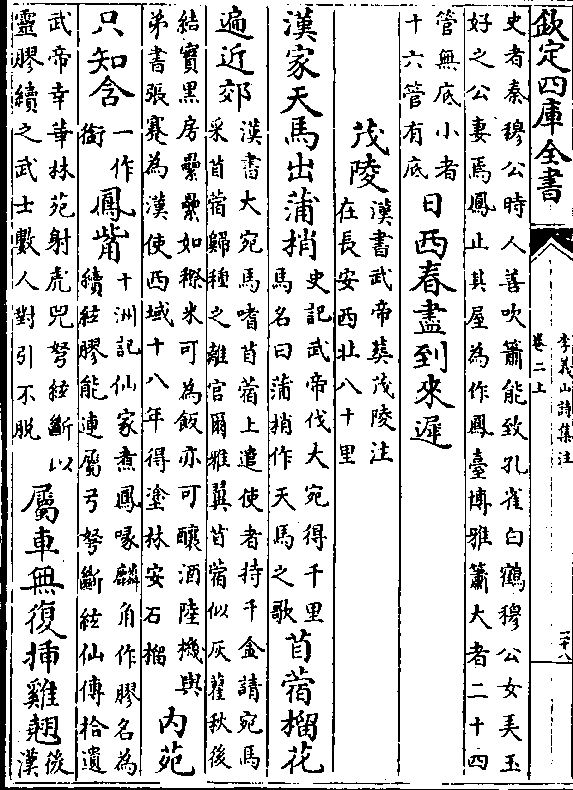 欽定四庫全書
李義山詩集注
卷二上
二十八
史者秦穆公時人善吹簫能致孔雀白鶴穆公女美玉
好之公妻焉鳳止其屋為作鳳臺博雅簫大者二十四
管無底小者
十六管有底
日西春盡到來遲
茂陵
漢書武帝葬茂陵注
在長安西北八十里
漢家天馬出蒲梢
史記武帝伐大宛得千里
馬名曰蒲梢作天馬之歌
苜蓿榴花
遍近郊
漢書大宛馬嗜苜蓿上遣使者持千金請宛馬
采苜蓿歸種之離宮爾雅翼苜蓿似灰藋秋後
結實黑房纍纍如穄米可為飯亦可釀酒陸機與
弟書張騫為漢使西域十八年得塗林安石榴
内苑
只知含
一作
銜
鳳觜
十洲記仙家煮鳳喙麟角作膠名為
續絃膠能連屬弓弩斷絃仙傳拾遺
武帝幸華林苑射虎兕弩絃斷以
靈膠續之武士數人對引不脱
屬車無復插雞翹
後
漢